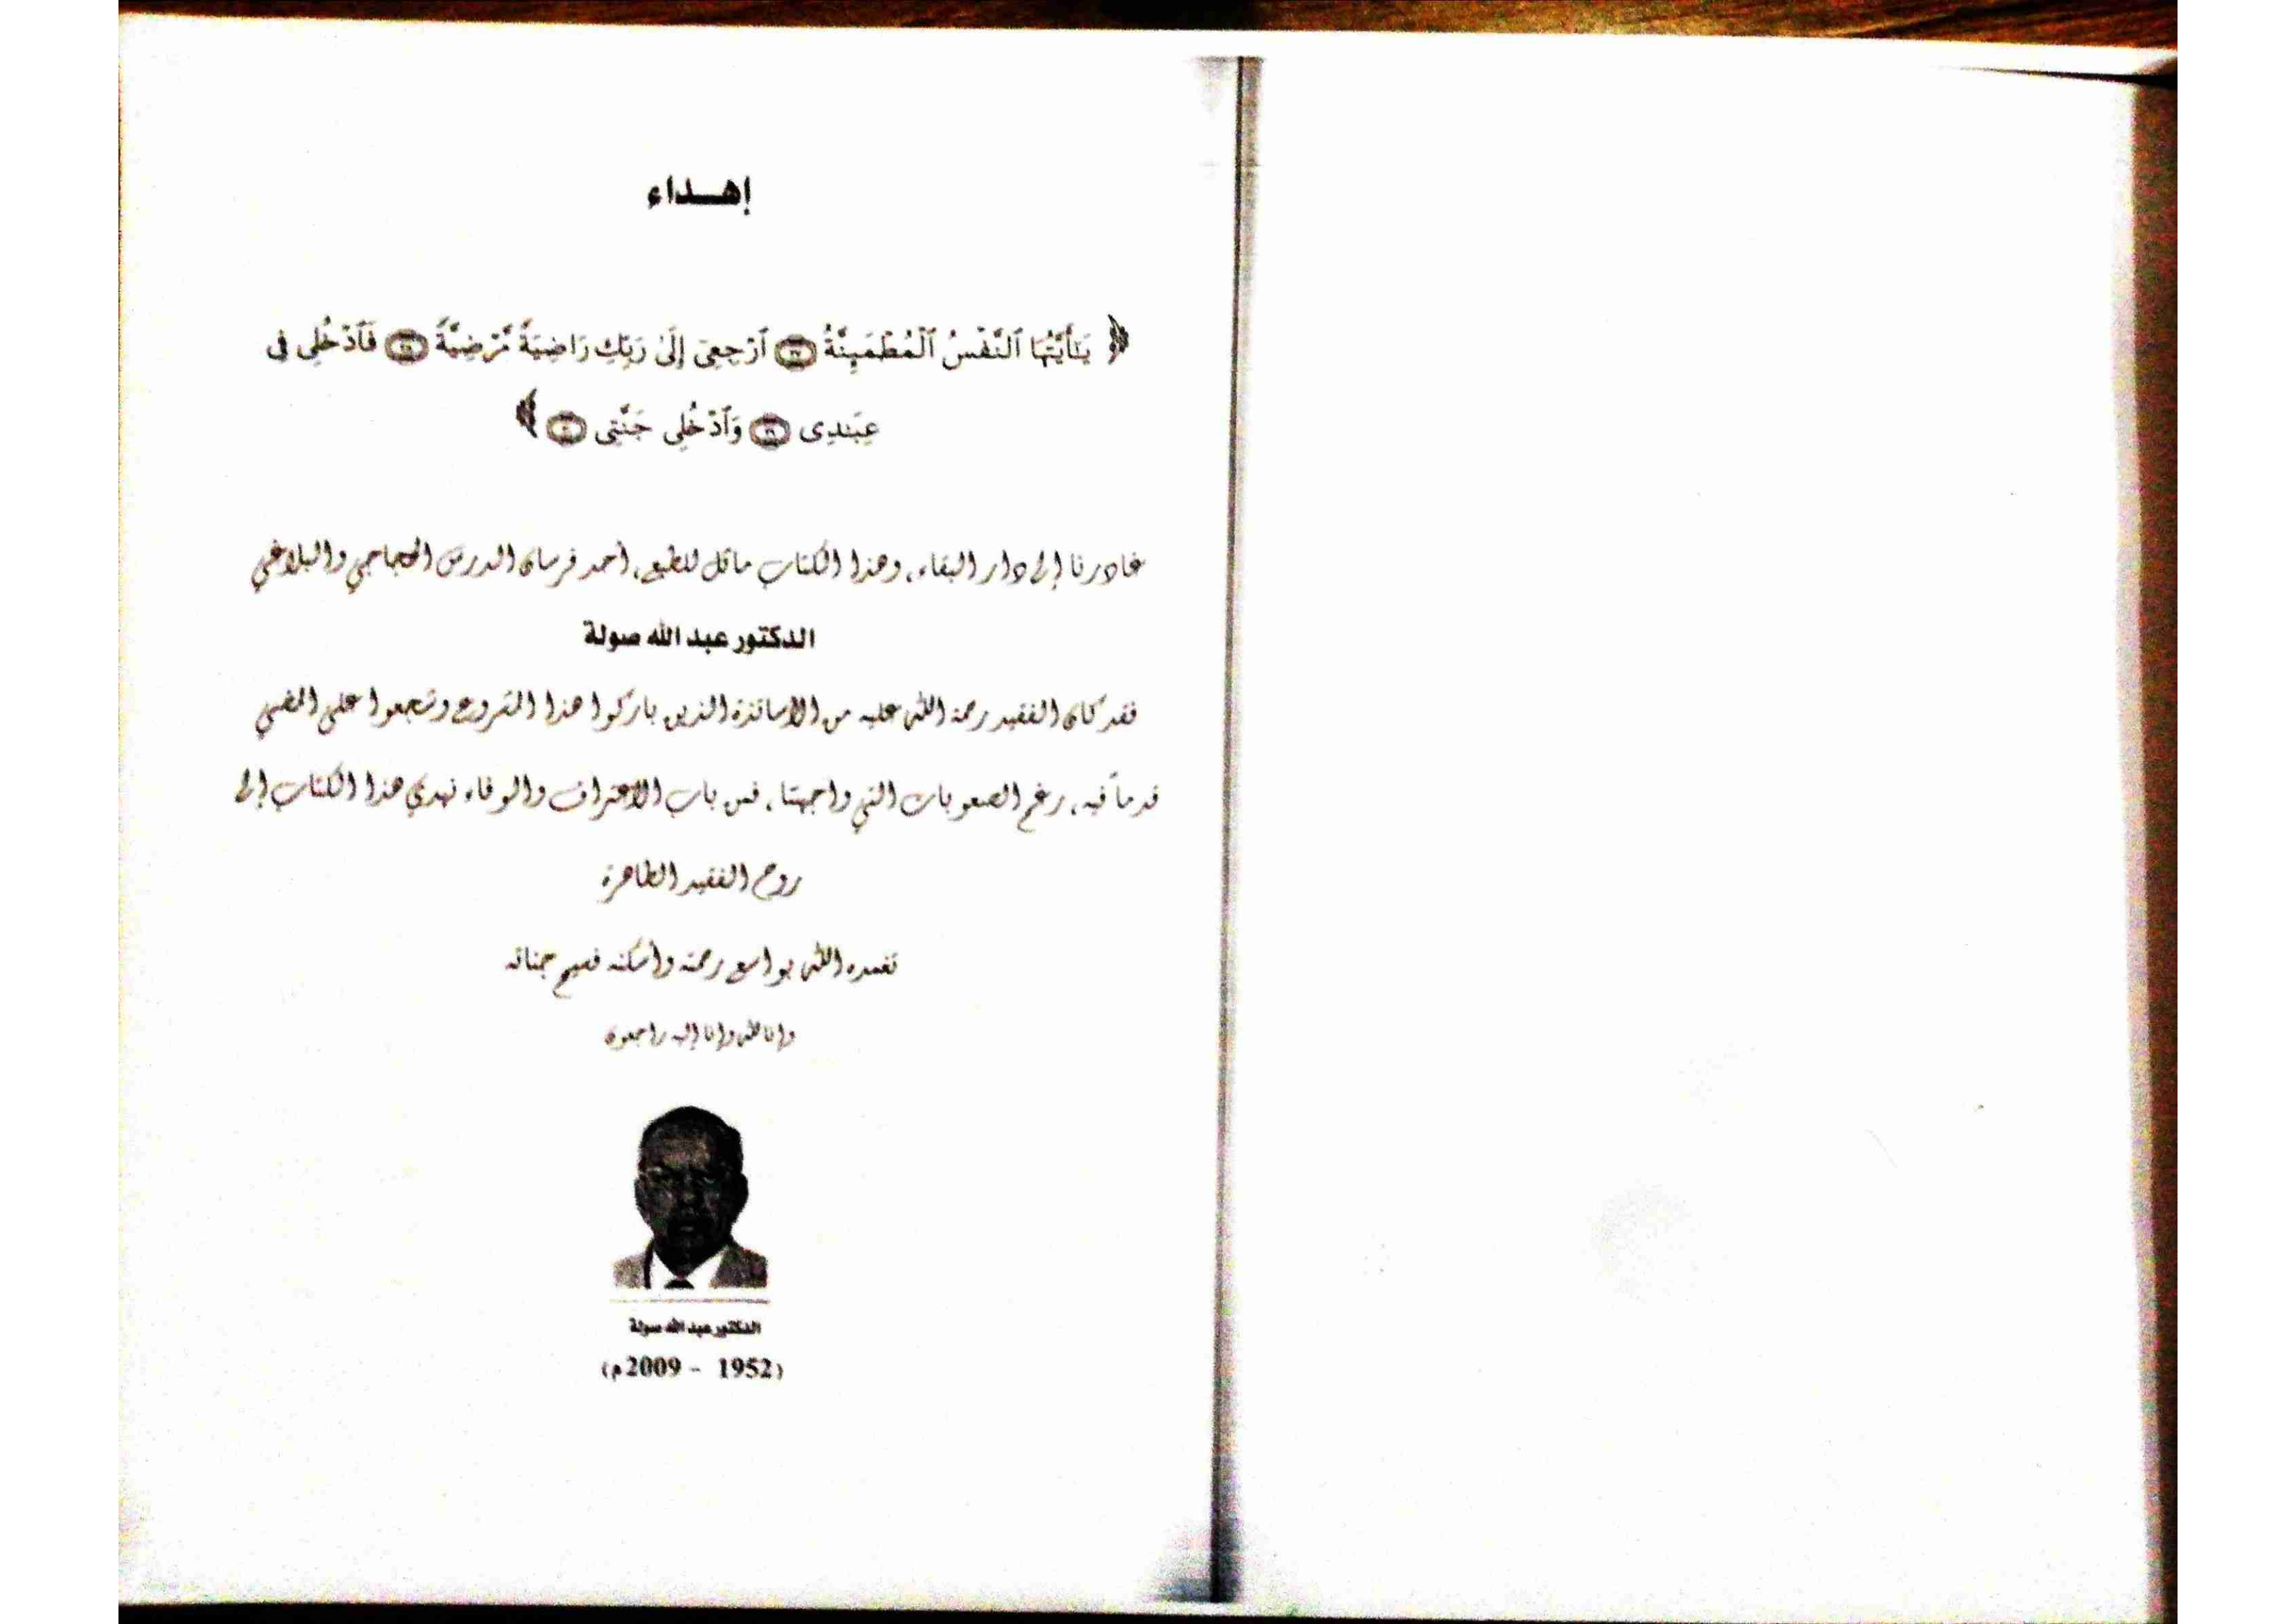 إهـــداء
﴿ يَـٰٓأَيَّتُهَا ٱلنَّفْسُ ٱلْمُطْمَئِنَّةُ ٢٧ ٱرْجِعِىٓ إِلَىٰ رَبِّكِ رَاضِيَةً مَّرْضِيَّةً ٢٨ فَٱدْخُلِى فِى
عِبَـٰدِى ٢٩ وَٱدْخُلِى جَنَّتِى ٣٠ ﴾
غادرنا إلى دار البقاء، وهذا الكتاب ماثل للطبع، أحد فرسان الدرس الحجاجي والبلاغي
الدكتور عبد الله صولة
فقد كان الفقيد رحمة الله عليه من الأساتذة الذين باركوا هذا المشروع وشجعوا على المضي
قدماً فيه، رغم الصعوبات التي واجهتنا، فمن باب الاعتراف والوفاء نهدي هذا الكتاب إلى
روح الفقيد الطاهرة
تغمده الله بواسع رحمته وأسكنه فسيح جنانه
وإنا لله وإنا إليه راجعون
الدكتور عبد الله صولة
(1952 - 2009م)